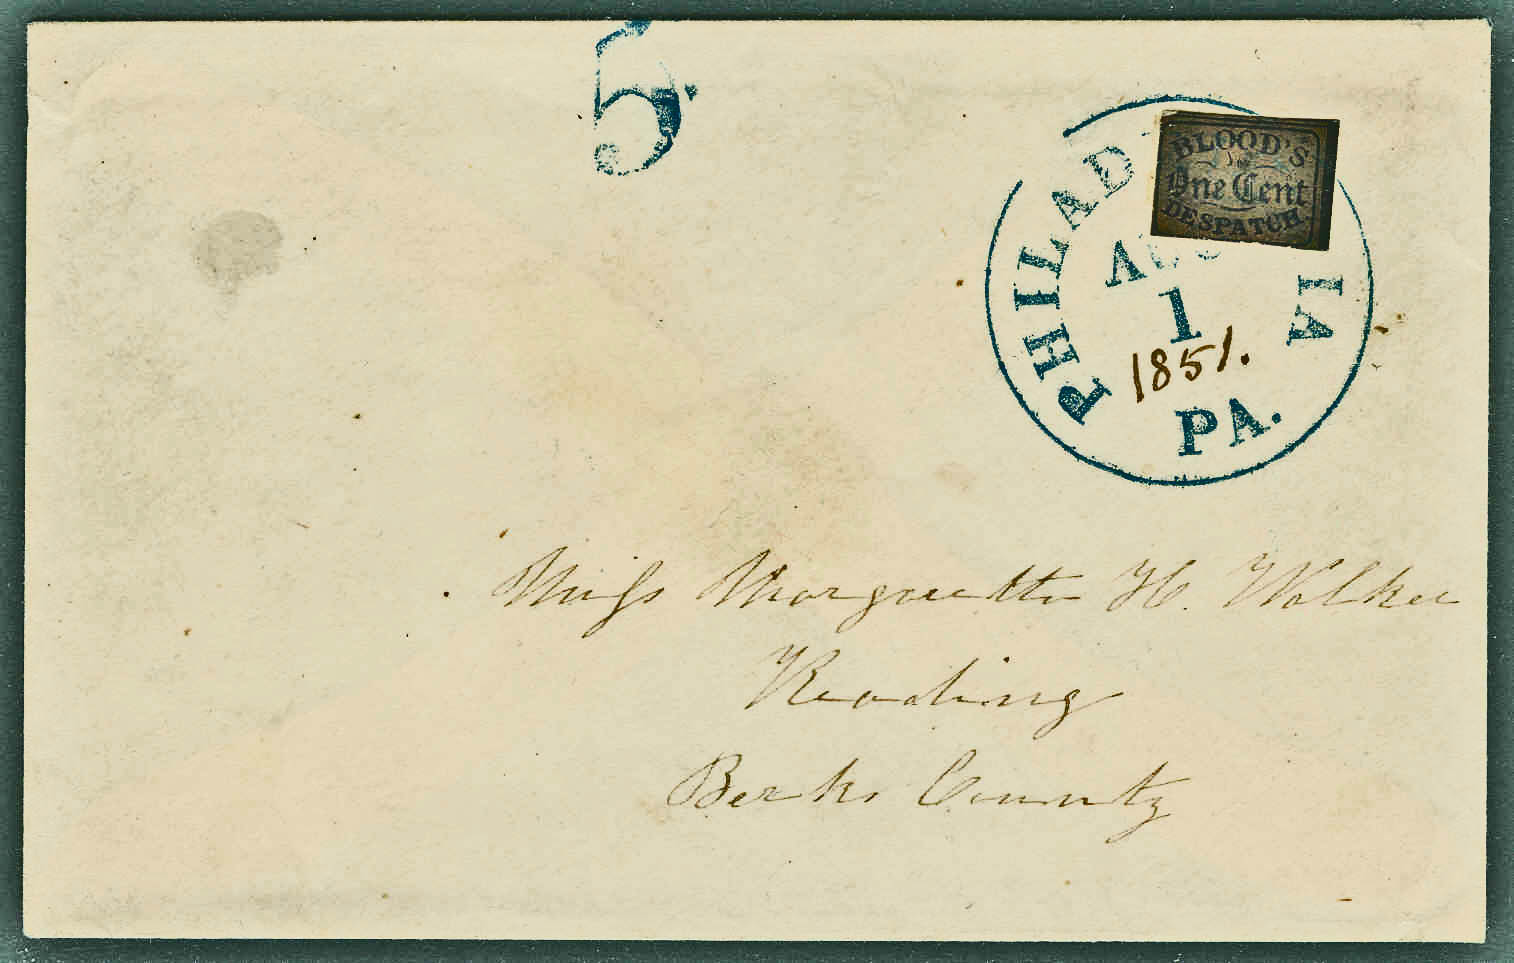 5
PHILAD IA
BLOOD'S
One Cent
DESPATCH
AUG
1
1851.
PA.
Miss Margaretta H. Walker
Reading
Berks County